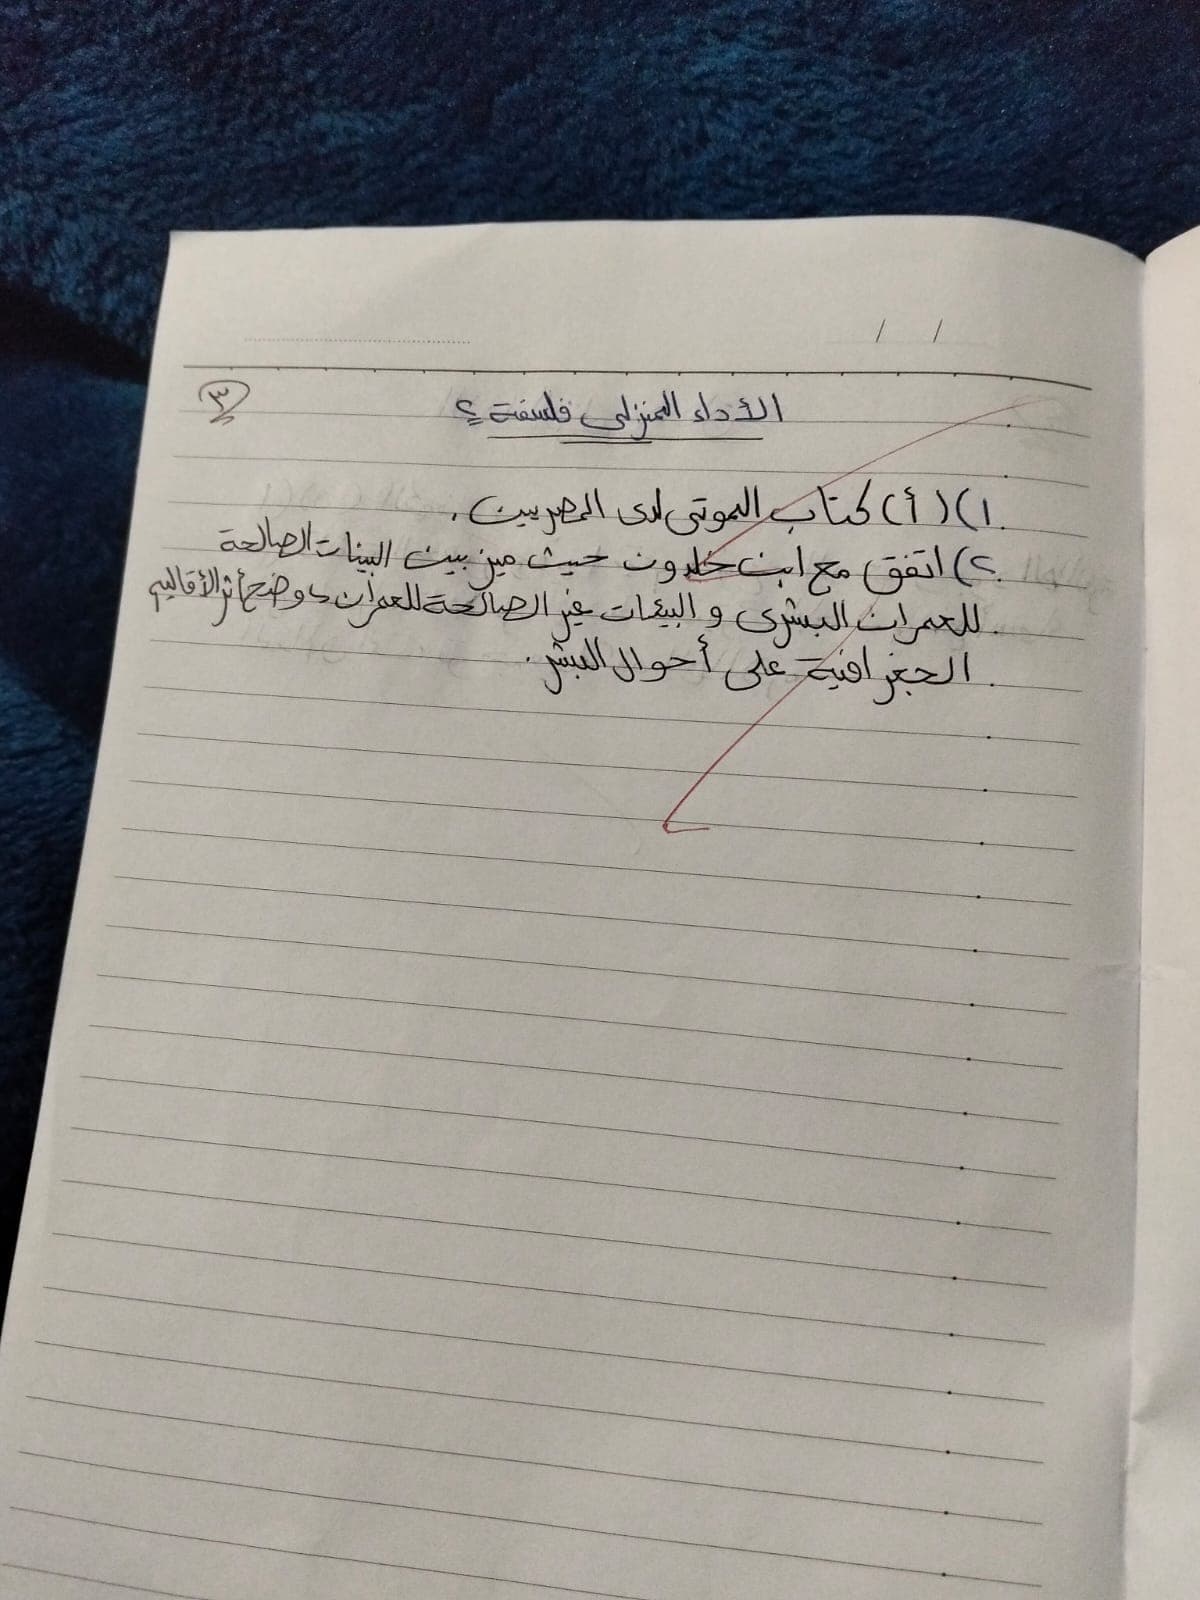 / /
٣
الأداء المنزلى فلسفة ؟
١) (أ) كتاب الموتى لدى المصريين .
٢) اتفق مع ابن خلدون حيث ميز بين البيئات الصالحة
للعمران البشرى و البيئات غير الصالحة للعمران ، وضح أثر الأقاليم
الجغرافية على أحوال البشر .